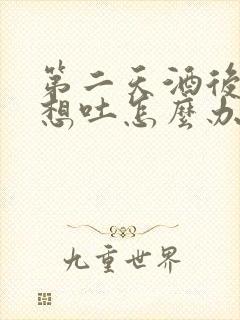 第二天酒後
想吐怎麼办
九重世界